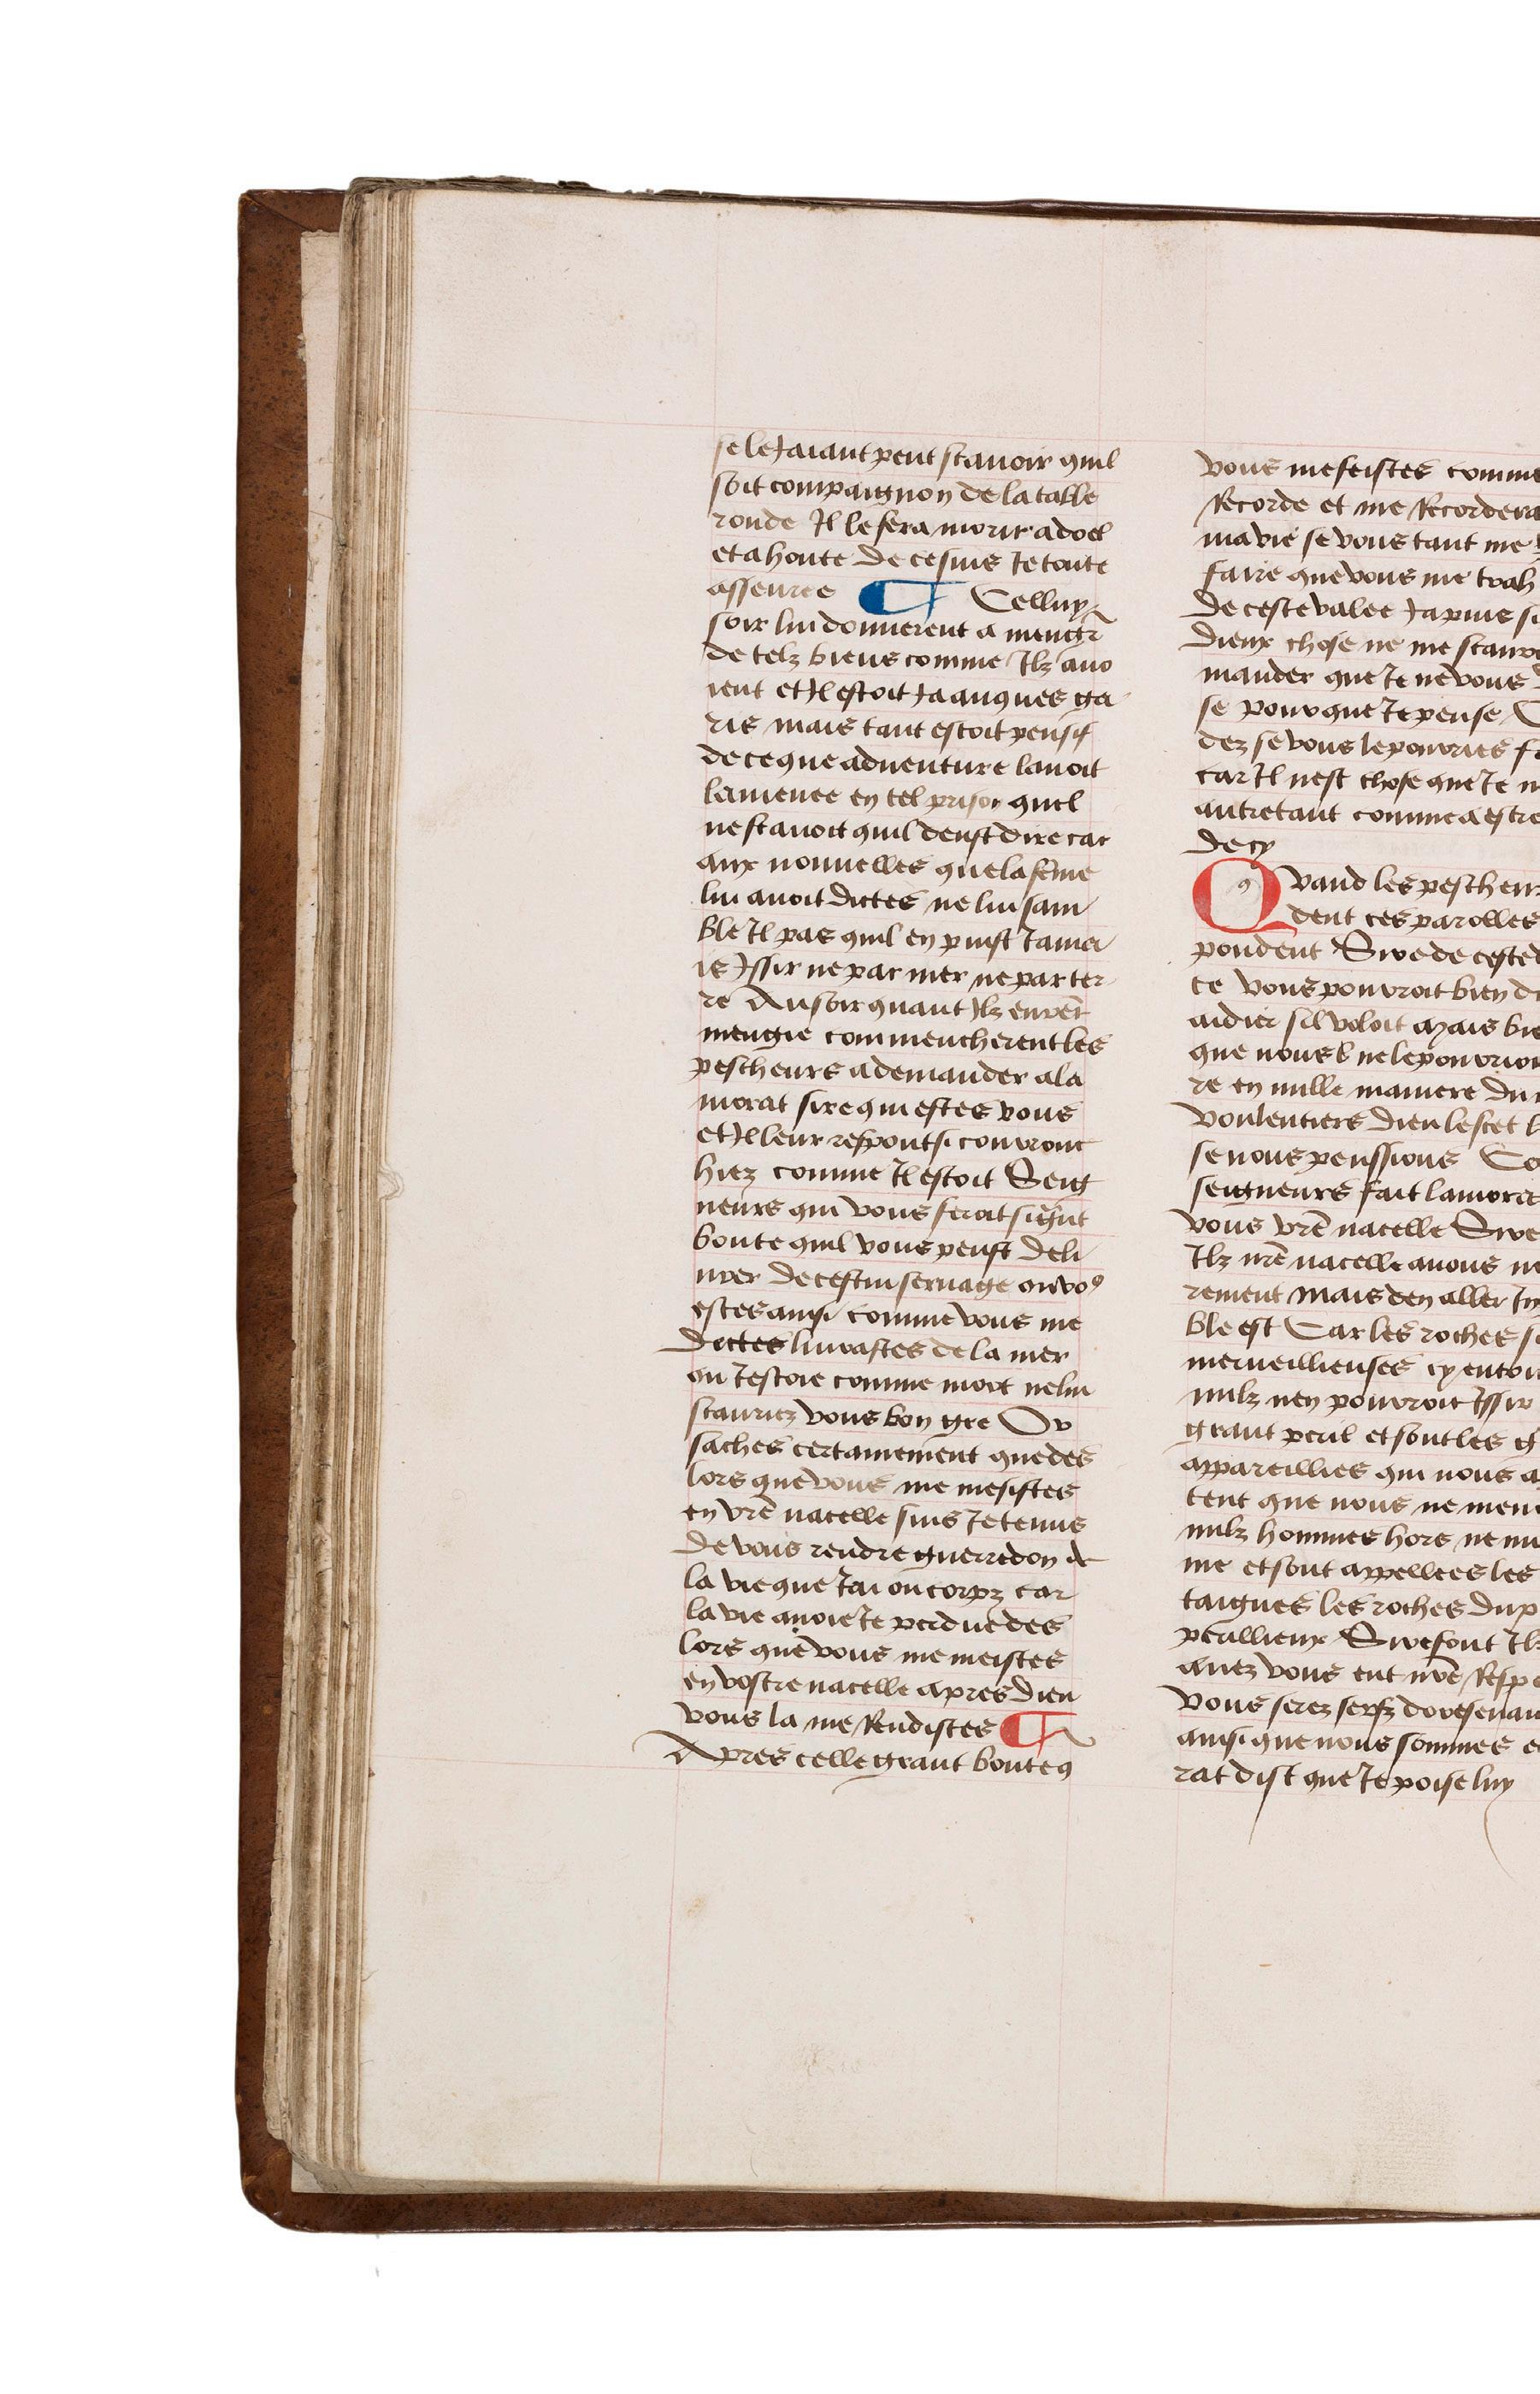 se le Jaiant peut scauoir quil
soit compaignon de la table
ronde Il le fera morir a doel
et a honte de ce suis Je toute
asseuree ¶ Celluy
soir lui donnerent a mengr̄
de telz biens comme Ilz auo
ient et Il estoit Ja auques ga
ris mais tant estoit pensif
de ce que aduenture lauoit
la menee en tel prison quel
ne scauoit quil deust dire car
aux nouuelles que la feme
lui auoit dictes ne lui sam
ble Il pas quil en puist Jama
is Issir ne par mer ne par ter
re Au soir quant Ilz eurēt
mengie commencherent les
pescheurs a demander a la
morat sire qui estes vous
et Il leur respont si conrouc
hiez comme Il estoit Seig
neurs qui vous feroit si grāt
bonte quil vous peust deli
urer de cestui seruage ou vo⁹
estes ainsi comme vous me
dictes liurastes de la mer
ou Jestoie comme mort ne lui
scauriez vous bon gre Or
saches certainement que des
lors que vous me mesistes
en vrē nacelle suis Je tenus
de vous rendre guerredon de
la vie que Jai ou corpz car
la vie auoie Je perdue des
lors que vous me meistes
en vostre nacelle apres dieu
vous la me Rendistes ¶
Apres celle grant bonte q
vous me feistes comme
Recorde et me Recordera
ma vie se vous tant me
faire que vous me trah
de ceste valee Ja puis
dieux chose ne me
mander que Je ne vous
se pour que Je pense
dez se vous le pouries
car Il nest chose que Je
autretant comme a estre
de cy
Quand les pescheur
dent ces parolles
pondent Sire de ceste
ce vous pouroit bien
aidier sil voloit Mais
que nous ne le pourion
re en nulle maniere du
voulentiers dieu le scet
se nous peussions
seigneurs fait lamorat
vous vrē nacelle Sire
Ilz nrē nacelle auons
rement mais den aller
ble est Car les roches
merueillieuses cy entou
nulz nen pouroit Issir
grant peril et sont les
appareillies qui nous
tent que nous ne men
nulz hommes hors ne
me et sont appellees les
taignes les roches du
perillieux Sire font Ilz
auez vous ent nrē Resp
vous serez serfz doresenau
ainsi que nous sommes
rat dist que Je poise luy